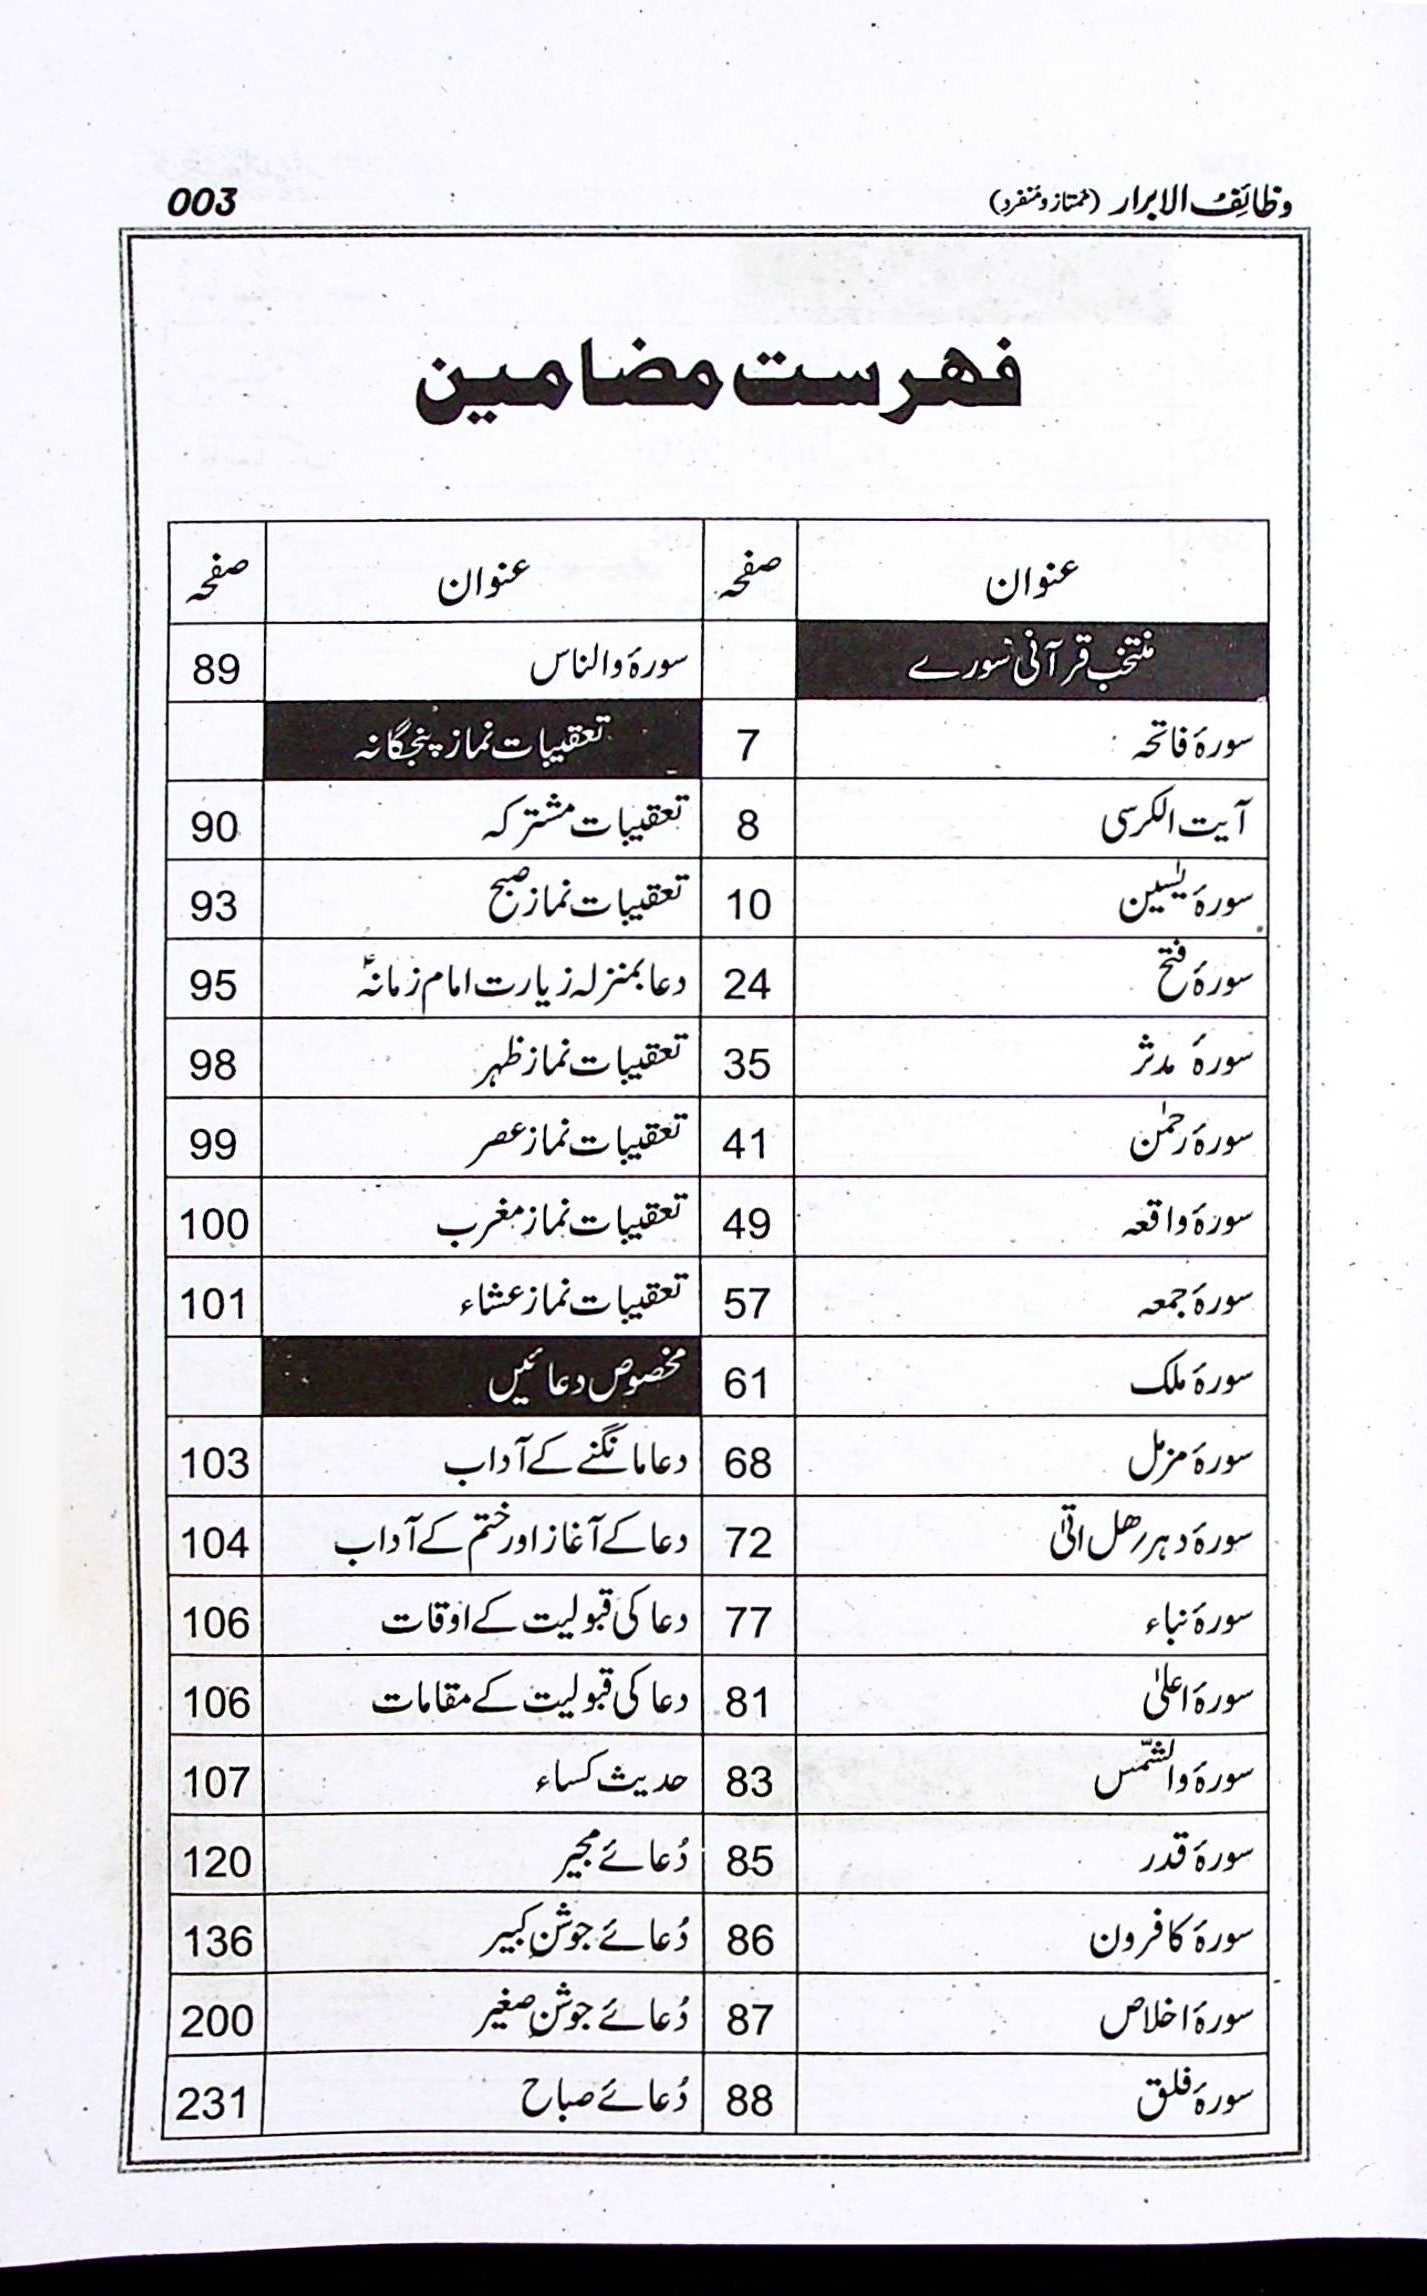 وظائف الابرار (ممتاز و منفرد) 003
فہرست مضامین
عنوان صفحہ عنوان صفحہ
منتخب قرآنی سورے سورۂ والناس 89
سورۂ فاتحہ 7 تعقیبات نماز پنجگانہ
آیت الکرسی 8 تعقیبات مشترکہ 90
سورۂ یٰسین 10 تعقیبات نماز صبح 93
سورۂ فتح 24 دعا بمنزلہ زیارت امام زمانہؑ 95
سورۂ مدثر 35 تعقیبات نماز ظہر 98
سورۂ رحمٰن 41 تعقیبات نماز عصر 99
سورۂ واقعہ 49 تعقیبات نماز مغرب 100
سورۂ جمعہ 57 تعقیبات نماز عشاء 101
سورۂ ملک 61 مخصوص دعائیں
سورۂ مزمل 68 دعا مانگنے کے آداب 103
سورۂ دہر رھل اتیٰ 72 دعا کے آغاز اور ختم کے آداب 104
سورۂ نباء 77 دعا کی قبولیت کے اوقات 106
سورۂ اعلیٰ 81 دعا کی قبولیت کے مقامات 106
سورۂ والشّمس 83 حدیث کساء 107
سورۂ قدر 85 دُعائے مجیر 120
سورۂ کافرون 86 دُعائے جوشن کبیر 136
سورۂ اخلاص 87 دُعائے جوشن صغیر 200
سورۂ فلق 88 دُعائے صباح 231